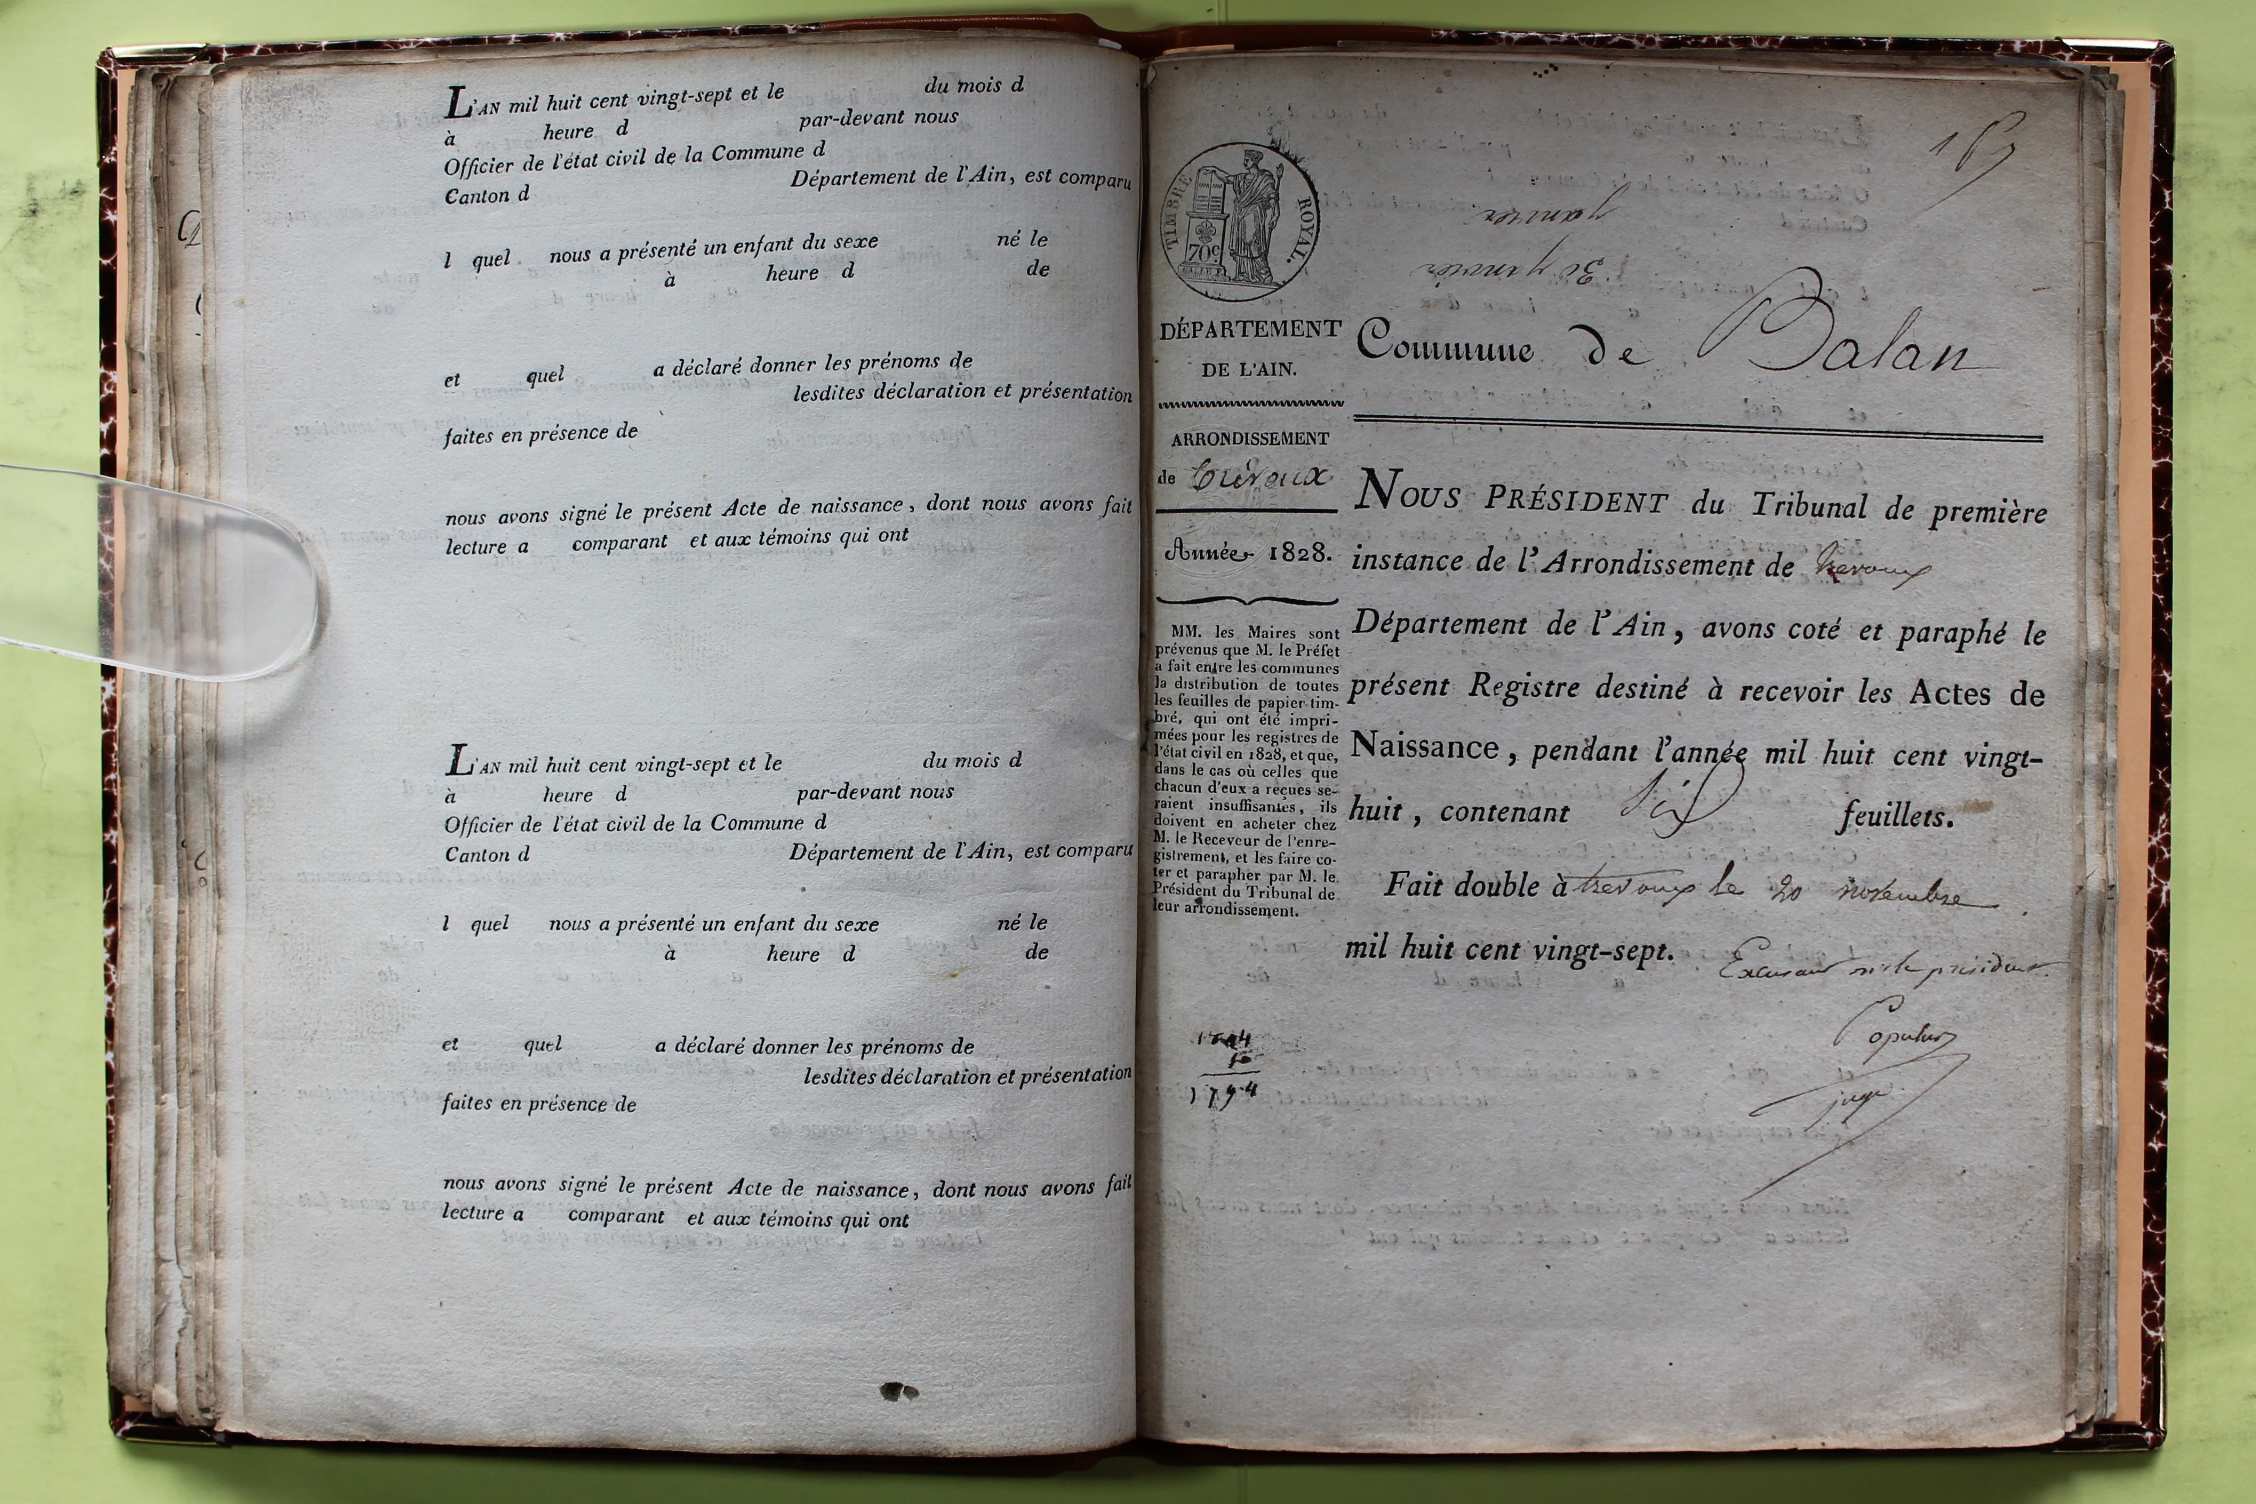 L'AN mil huit cent vingt-sept et le du mois d
à heure d par-devant nous
Officier de l'état civil de la Commune d
Canton d Département de l'Ain, est comparu
l quel nous a présenté un enfant du sexe né le
à heure d de
et quel a déclaré donner les prénoms de
lesdites déclaration et présentation
faites en présence de
nous avons signé le présent Acte de naissance, dont nous avons fait
lecture a comparant et aux témoins qui ont
L'AN mil huit cent vingt-sept et le du mois d
à heure d par-devant nous
Officier de l'état civil de la Commune d
Canton d Département de l'Ain, est comparu
l quel nous a présenté un enfant du sexe né le
à heure d de
et quel a déclaré donner les prénoms de
lesdites déclaration et présentation
faites en présence de
nous avons signé le présent Acte de naissance, dont nous avons fait
lecture a comparant et aux témoins qui ont
TIMBRE ROYAL.
70c
janvier
30 janvier
DÉPARTEMENT
DE L'AIN.
ARRONDISSEMENT
de Trévoux
Année 1828.
MM. les Maires sont
prévenus que M. le Préfet
a fait entre les communes
la distribution de toutes
les feuilles de papier tim-
bré, qui ont été impri-
mées pour les registres de
l'état civil en 1828, et que,
dans le cas où celles que
chacun d'eux a reçues se-
raient insuffisantes, ils
doivent en acheter chez
M. le Receveur de l'enre-
gistrement, et les faire co-
ter et parapher par M. le
Président du Tribunal de
leur arrondissement.
1794
Commune de Balan
NOUS PRÉSIDENT du Tribunal de première
instance de l'Arrondissement de trevoux
Département de l'Ain, avons coté et paraphé le
présent Registre destiné à recevoir les Actes de
Naissance, pendant l'année mil huit cent vingt-
huit, contenant six feuillets.
Fait double à trevoux le 20 novembre
mil huit cent vingt-sept.
président
juge